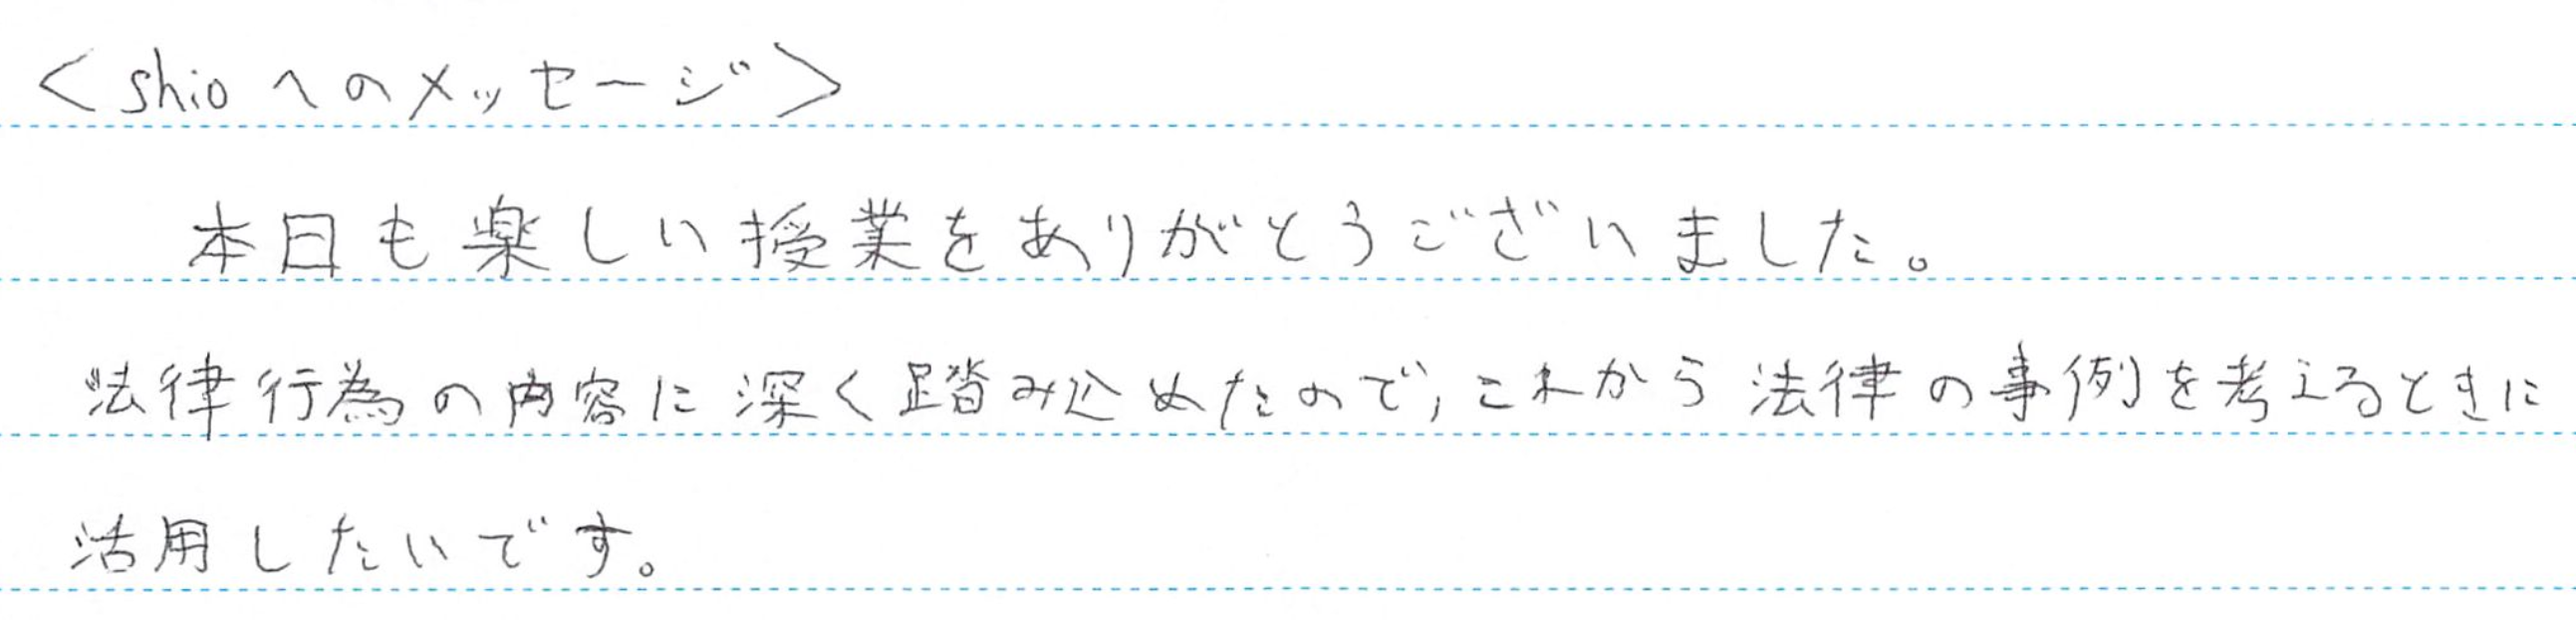 ＜shioへのメッセージ＞
本日も楽しい授業をありがとうございました。
法律行為の内容に深く踏み込めたので，これから法律の事例を考えるときに
活用したいです。